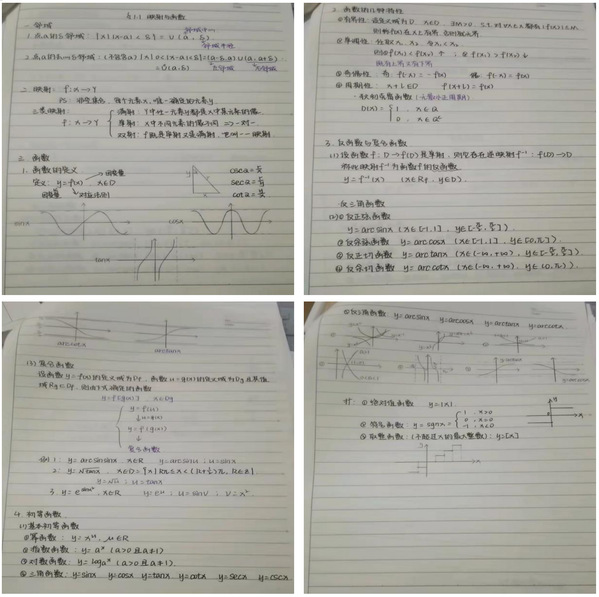 §1.1 映射与函数
一. 邻域
邻域中心
1. 点a的δ邻域: {x||x-a|<δ} = U(a, δ)
邻域半径
2. 点a的去心δ邻域: (不包含a) {x|0<|x-a|<δ}=(a-δ,a)∪(a,a+δ)
=Ů(a,δ) 左邻域 右邻域
二. 映射: f: X→Y
PS: 非空集合, 每个元素x, 唯一确定的元素y.
三类映射: 满射: Y中任一元素y都是X中某元素的像.
f: X→Y 单射: X中不同元素的像不同 => 一对一.
双射: f既是单射又是满射, 也叫一一映射
三. 函数
1. 函数的定义
定义: y=f(x), x∈D 自变量
因变量 对应法则
cscα=
secα=
cotα=
sinx cosx
tanx
2. 函数的几种特性
①有界性:
②单调性: 任取x₁, x₂, 令x₁<x₂
则若f(x₁)<f(x₂) ↑ ; 若f(x₁)>f(x₂) ↓
③奇偶性: 奇: f(-x)=-f(x) 偶: f(-x)=f(x)
④周期性: x+l∈D f(x+l)=f(x)
—狄利克雷函数 (无最小正周期)
D(x)= { 1, x∈Q
0, x∈Qᶜ
3. 反函数与复合函数
(1) 设函数f: D→f(D)是单射, 则它存在逆映射f⁻¹: f(D)→D.
称此映射f⁻¹为函数f的反函数.
y=f⁻¹(x) (x∈Rf, y∈D).
反三角函数
(2)①反正弦函数
y=arcsinx (x∈[-1,1], y∈[-π/2,π/2])
②反余弦函数 y=arccosx (x∈[-1,1], y∈[0,π]).
③反正切函数 y=arctanx (x∈(-∞,+∞), y∈[-π/2,π/2]).
④反余切函数 y=arccotx (x∈(-∞,+∞), y∈(0,π)).
arccotx arctanx
(3) 复合函数
设函数y=f(u)的定义域为Df, 函数u=g(x)的定义域为Dg且其值
域Rg⊂Df, 则由下式确定的函数
y=f[g(x)] x∈Dg
y=f(u)
↓u=g(x)
y=f[g(x)]
↓
复合函数
例1: y=arcsinsinx, x∈R y=arcsinu; u=sinx
2: y=√tanx, x∈D={x|kπ≤x<(k+½)π, k∈Z}
y=√u; u=tanx
3. x∈R y=eᵘ; u=sinv; v=x²
4. 初等函数
(1)基本初等函数
①幂函数: y=xᵘ, μ∈R
②指数函数: y=aˣ (a>0且a≠1)
③对数函数: y=logₐx (a>0且a≠1)
④三角函数: y=sinx y=cosx y=tanx y=cotx y=secx y=cscx
⑤反三角函数 y=arcsinx y=arccosx y=arctanx y=arccotx
附: ①绝对值函数 y=|x|
②符号函数: y=sgnx= { 1, x>0
0, x=0
-1, x<0
③取整函数: (不超过x的最大整数): y=[x]